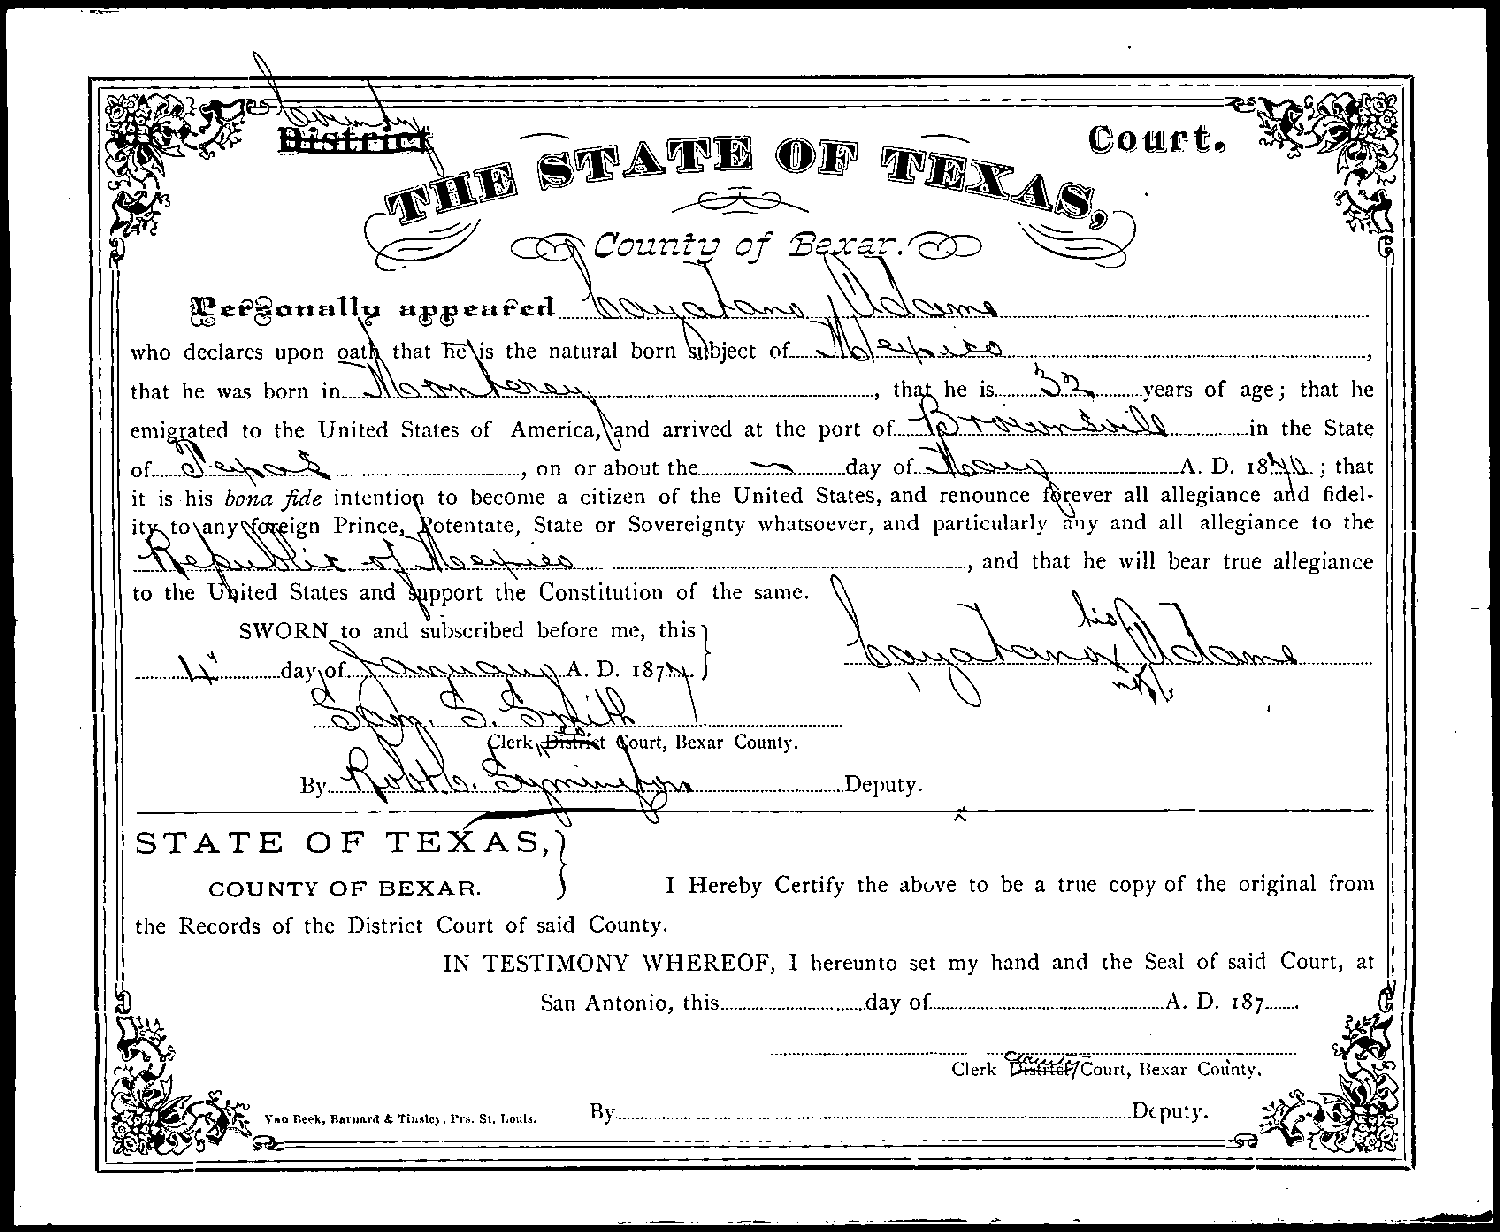 County
District Court.
THE STATE OF TEXAS,
County of Bexar.
Personally appeared Cayatano Adams
who declares upon oath that he is the natural born subject of Mexico,
that he was born in Monterey, that he is 32 years of age; that he
emigrated to the United States of America, and arrived at the port of Brownsvill in the State
of Texas, on or about the — day of May A. D. 18; that
it is his bona fide intention to become a citizen of the United States, and renounce forever all allegiance and fidel-
ity to any foreign Prince, Potentate, State or Sovereignty whatsoever, and particularly any and all allegiance to the
Republic of Mexico, and that he will bear true allegiance
to the United States and support the Constitution of the same.
SWORN to and subscribed before me, this
4" day of January A. D. 187
his
Cayatano x Adams
mark
Sam. S. Smith
Clerk District Court, Bexar County.
By Robt C. Symington Deputy.
STATE OF TEXAS,
COUNTY OF BEXAR.
I Hereby Certify the above to be a true copy of the original from
the Records of the District Court of said County.
IN TESTIMONY WHEREOF, I hereunto set my hand and the Seal of said Court, at
San Antonio, this day of A. D. 187
County
Clerk District Court, Bexar County.
By Deputy.
Van Beek, Barnard & Tinsley, Prs. St. Louis.